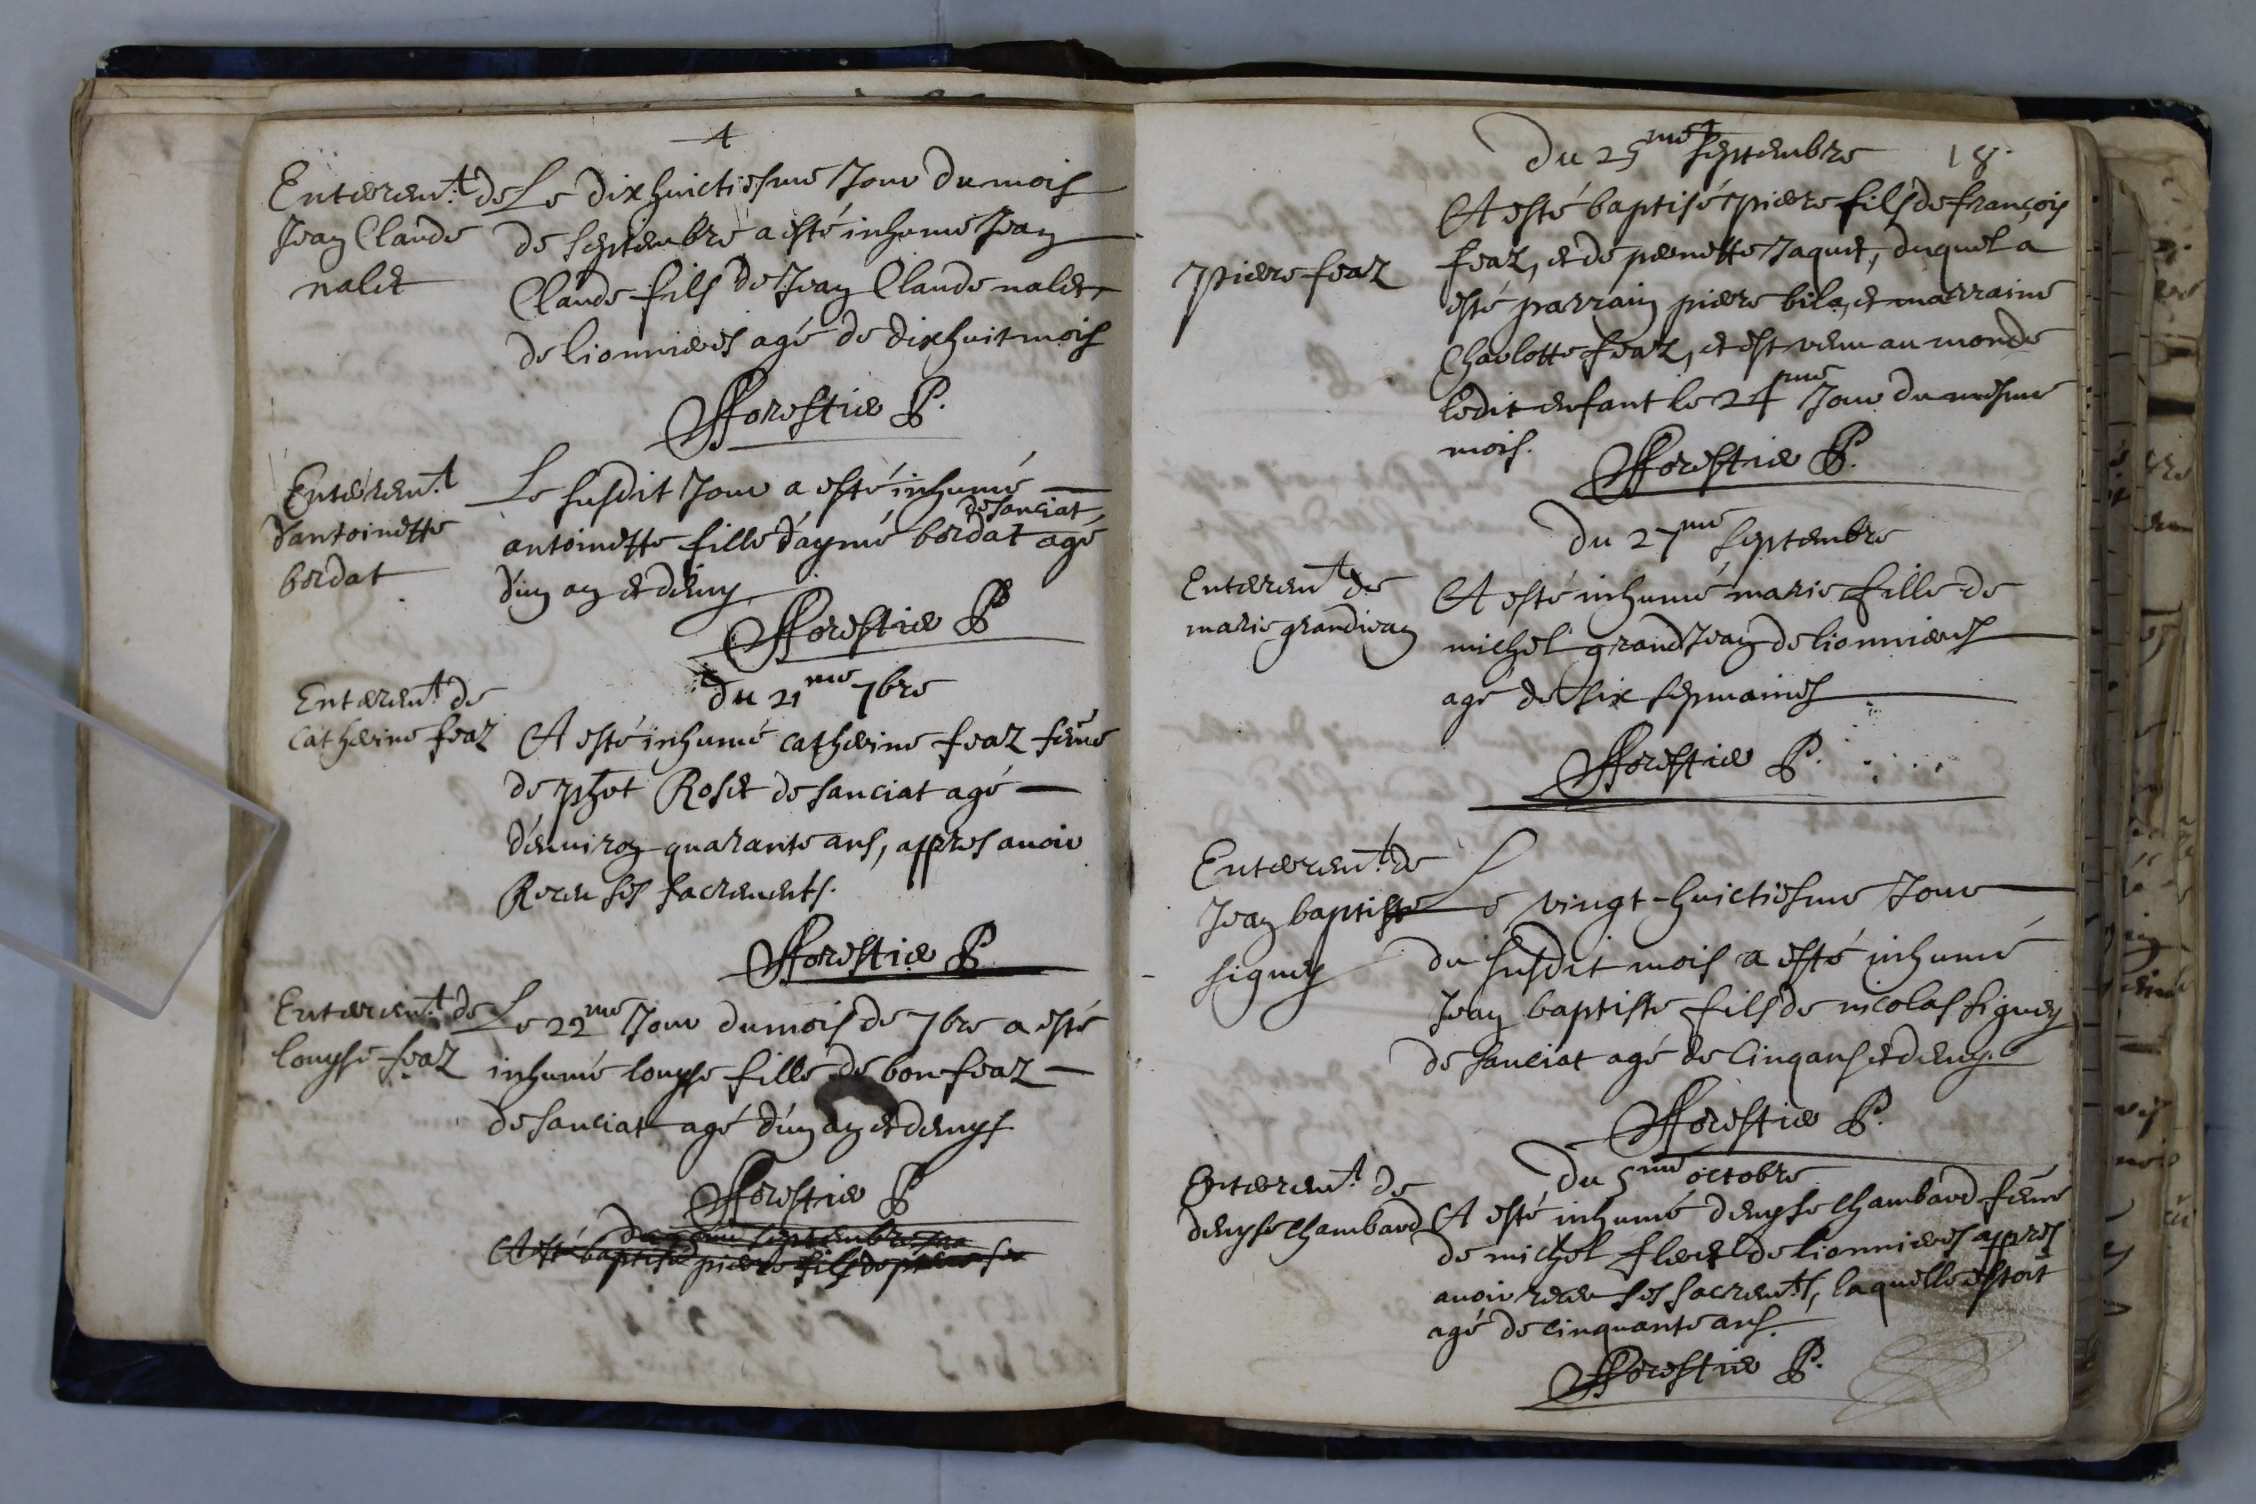 Enterem.t de
Jean Claude
nalet
Le dixhuictiesme Jour du mois
de septembre a esté inhumé Jean
Claude fils de Jean Claude nalet
de lionnieres agé de dixhuit mois
fforestier P.
Enterem.t
d'antoinette
bordat
Le susdit Jour a esté inhumé
de sanciat
antoinette fille d'aymé bordat agé
d'un an et demy
fforestier P
du 21me 7bre
Enterem.t de
catherine feaz
A esté inhumé catherine feaz feme
de phet Roset de sanciat agé
d'environ quarante ans, appres avoir
Receu ses sacrements.
fforestier P
Enterem.t de
louyse feaz
Le 22me Jour du mois de 7bre a esté
inhumé louyse fille de bon feaz
de sanciat agé d'un an et demys
fforestier P
A esté baptisé pierre fils de
18.
Du 25me septembre
Pierre feaz
A esté baptisé pierre fils de françois
feaz, et de pernette Jaquet, duquel a
esté parrain pierre bila, et marraine
Charlotte feaz, et est venu au monde
ledit enfant le 24me Jour du mesme
mois.
fforestier P.
Du 27me septembre
Enterem.t de
marie grandjean
A esté inhumé marie fille de
michel grandJean de lionnieres
agé de six sepmaines
fforestier P.
Enterem.t de
Jean baptiste
signey
Le vingt-huictiesme Jour
du susdit mois a esté inhumé
Jean baptiste fils de nicolas signey
de sanciat agé de cinq ans et demy.
fforestier P.
Du 5me octobre
Enterem.t de
denyse chambard
A esté inhumé denyse chambard feme
de michel de lionnieres appres
avoir receu ses sacrem.ts, laquelle estoit
agé de cinquante ans.
fforestier P.